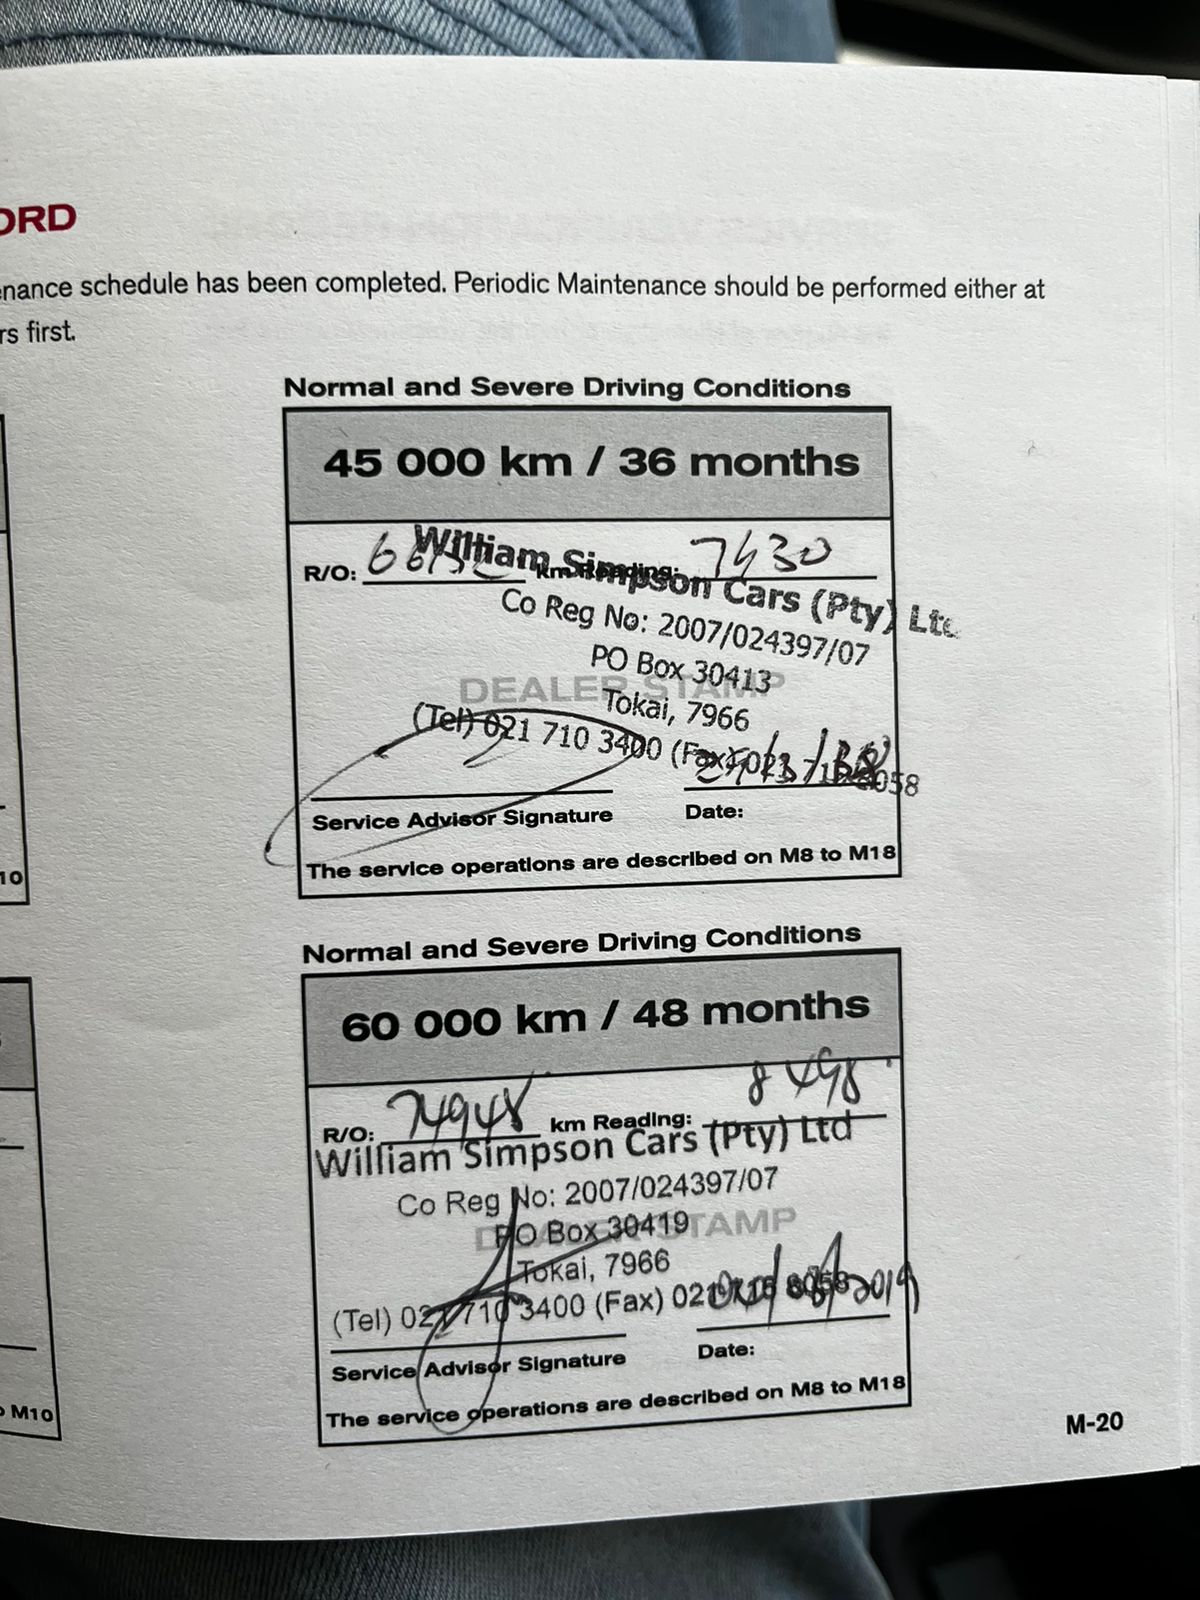 ORD
enance schedule has been completed. Periodic Maintenance should be performed either at
rs first.
Normal and Severe Driving Conditions
45 000 km / 36 months
R/O: km Reading: 7430
William Simpson Cars (Pty) Ltd
Co Reg No: 2007/024397/07
PO Box 30413
DEALER STAMP
Tokai, 7966
(Tel) 021 710 3400 (Fax) 021 8058
Service Advisor Signature Date:
The service operations are described on M8 to M18
10
Normal and Severe Driving Conditions
60 000 km / 48 months
R/O: 74948 km Reading: 8498
William Simpson Cars (Pty) Ltd
Co Reg No: 2007/024397/07
DEALER STAMP
PO Box 30419
Tokai, 7966
(Tel) 021 710 3400 (Fax) 021 8058
2019
Service Advisor Signature Date:
The service operations are described on M8 to M18
o M10
M-20